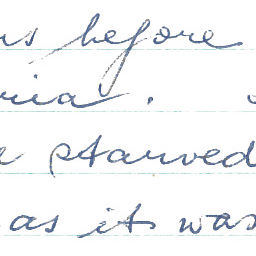 before
.
starved
as it was